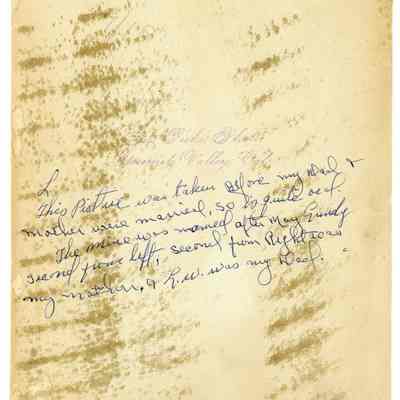 Photo
Valley
L
This Picture was taken before my Dad &
Mother were married, so is quite old.
The mine was named after May Lundy
second from left, second from Right was
my mother, & L.W. was my Dad.